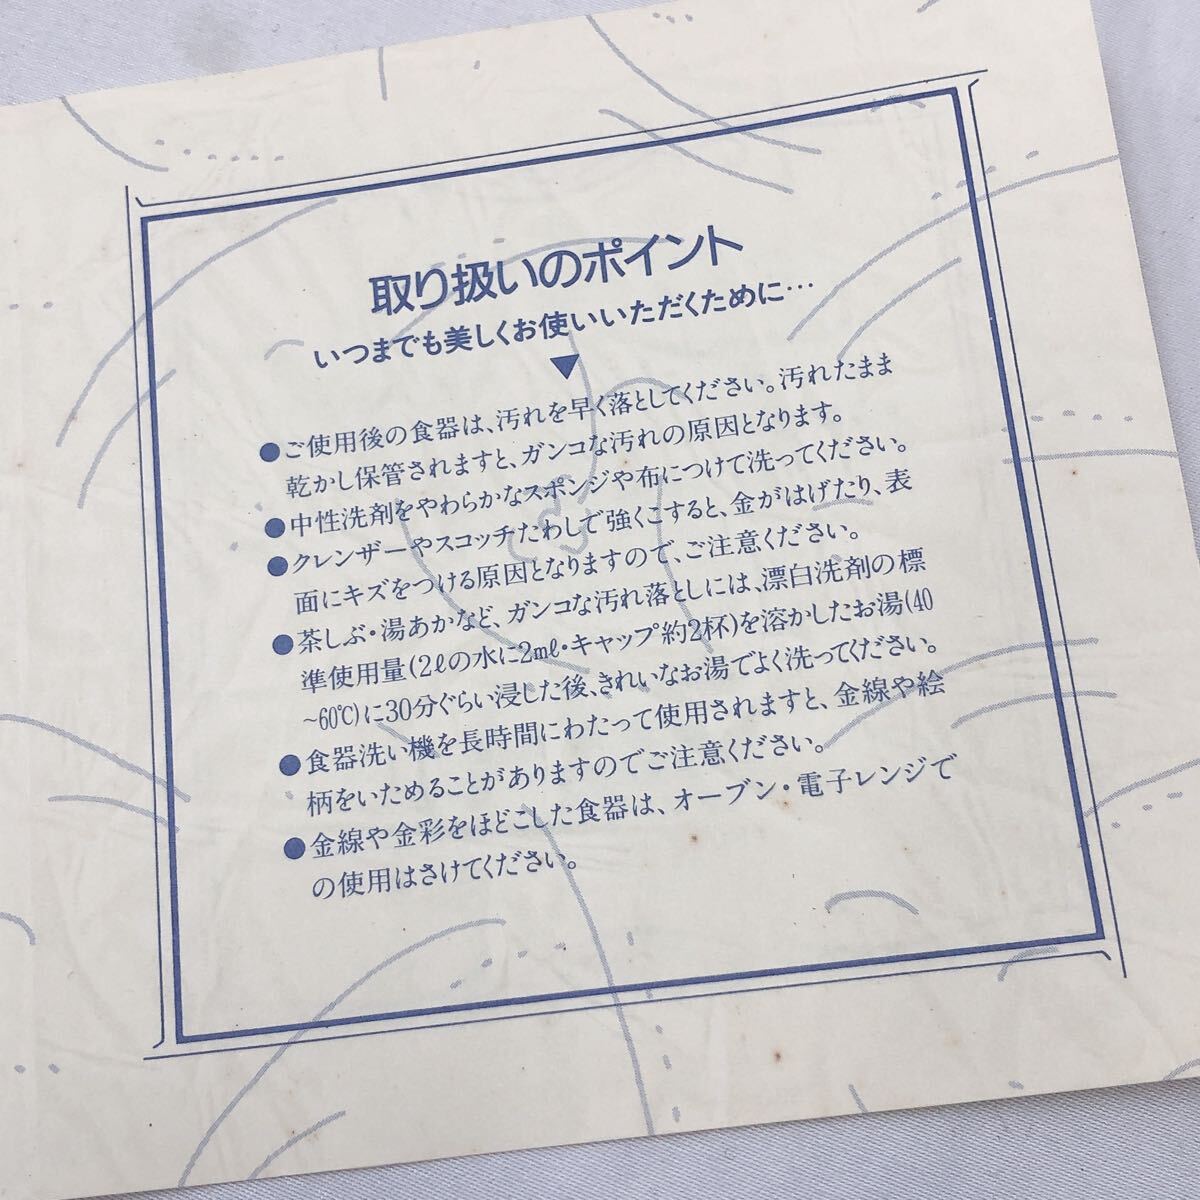 取り扱いのポイント
いつまでも美しくお使いいただくために…
▼
●ご使用後の食器は、汚れを早く落としてください。汚れたまま
乾かし保管されますと、ガンコな汚れの原因となります。
●中性洗剤をやわらかなスポンジや布につけて洗ってください。
●クレンザーやスコッチたわしで強くこすると、金がはげたり、表
面にキズをつける原因となりますので、ご注意ください。
●茶しぶ・湯あかなど、ガンコな汚れ落としには、漂白洗剤の標
準使用量(2ℓの水に2mℓ・キャップ約2杯)を溶かしたお湯(40
~60℃)に30分ぐらい浸した後、きれいなお湯でよく洗ってください。
●食器洗い機を長時間にわたって使用されますと、金線や絵
柄をいためることがありますのでご注意ください。
●金線や金彩をほどこした食器は、オーブン・電子レンジで
の使用はさけてください。